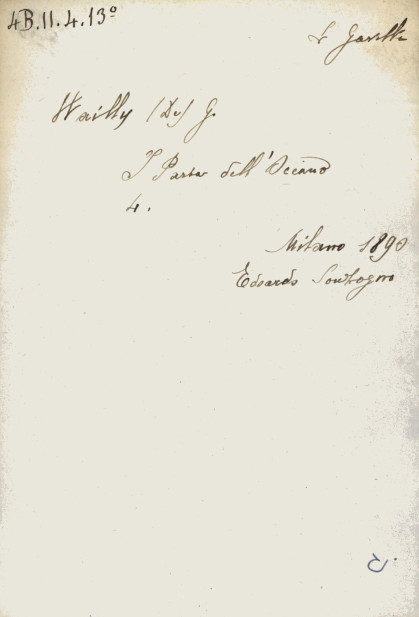 4B.11.4.13º
Wailly (De) G.
I Paria dell'Oceano
4.
Milano 1890
Edoardo Sonzogno